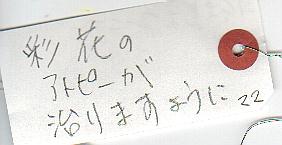 彩花の
アトピーが
治りますように 22